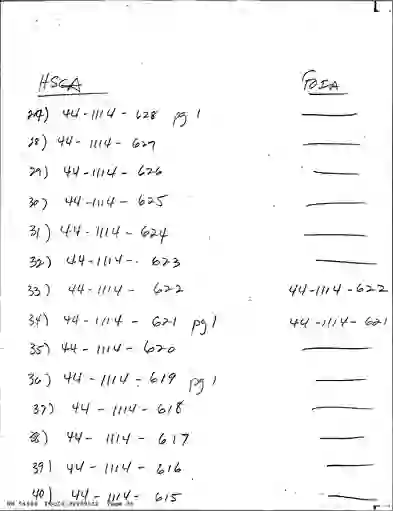 HSCA FOIA
27) 44-1114-628 pg 1 ____
28) 44-1114-627 ____
29) 44-1114-626 ____
30) 44-1114-625 ____
31) 44-1114-624 ____
32) 44-1114-623 ____
33) 44-1114-622 44-1114-622
34) 44-1114-621 pg 1 44-1114-621
35) 44-1114-620 ____
36) 44-1114-619 pg 1 ____
37) 44-1114-618 ____
38) 44-1114-617 ____
39) 44-1114-616 ____
40) 44-1114-615 ____